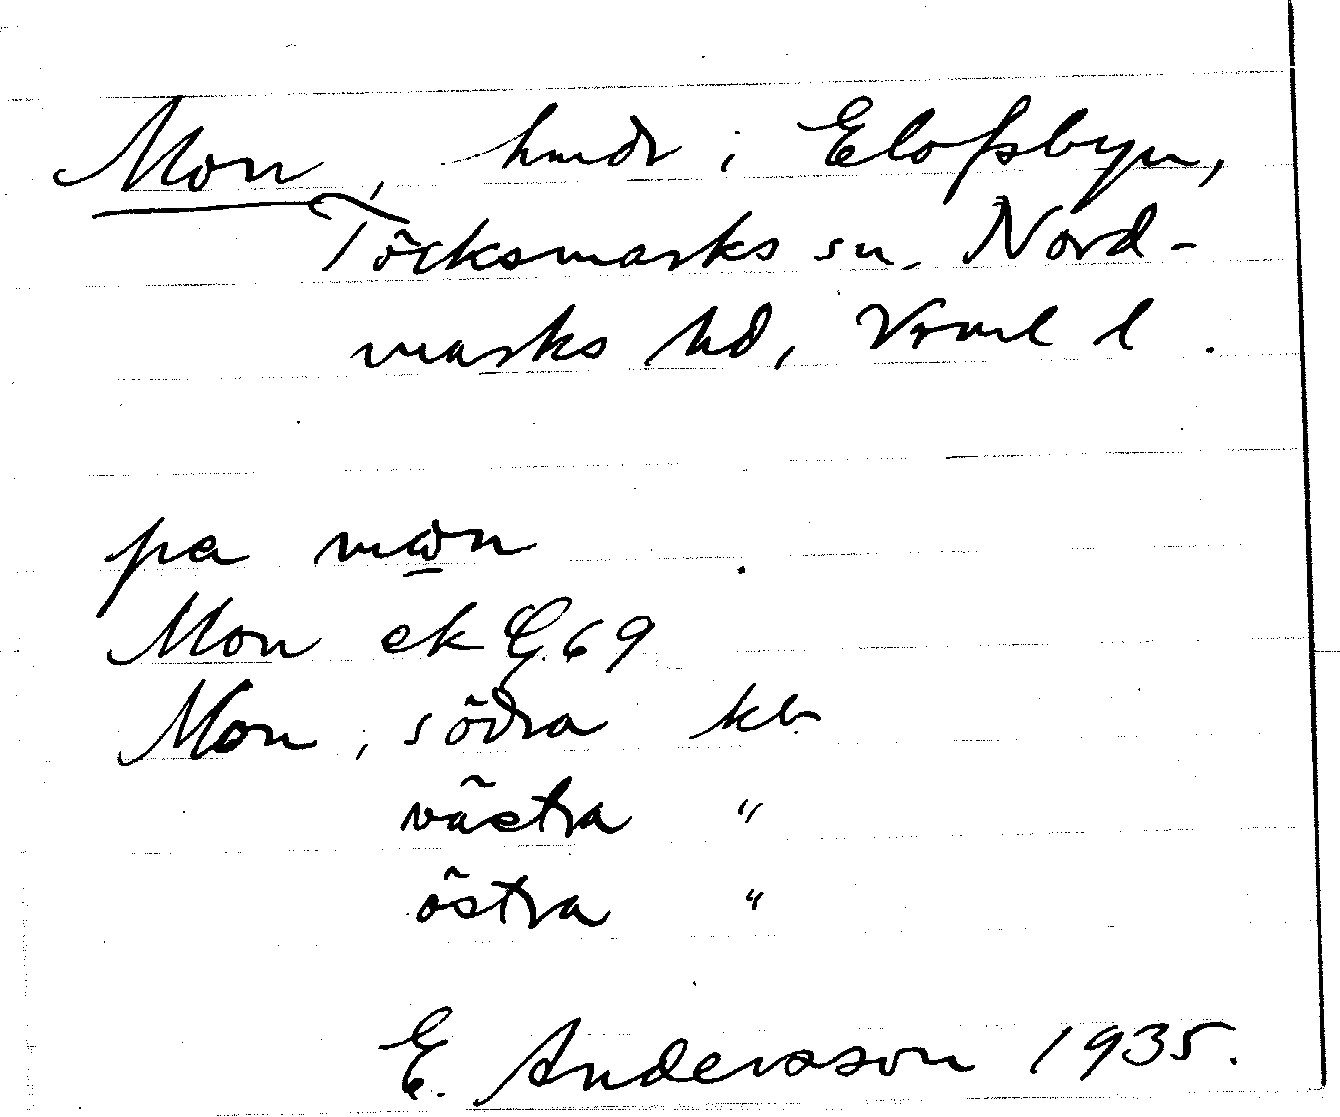 Mon, hmdr i Elofsbyn,
Töcksmarks sn. Nord-
marks hd, Vrml l.
pa mωn
Mon ek G. 69
Mon, södra kb
västra "
östra "
E. Andersson 1935.